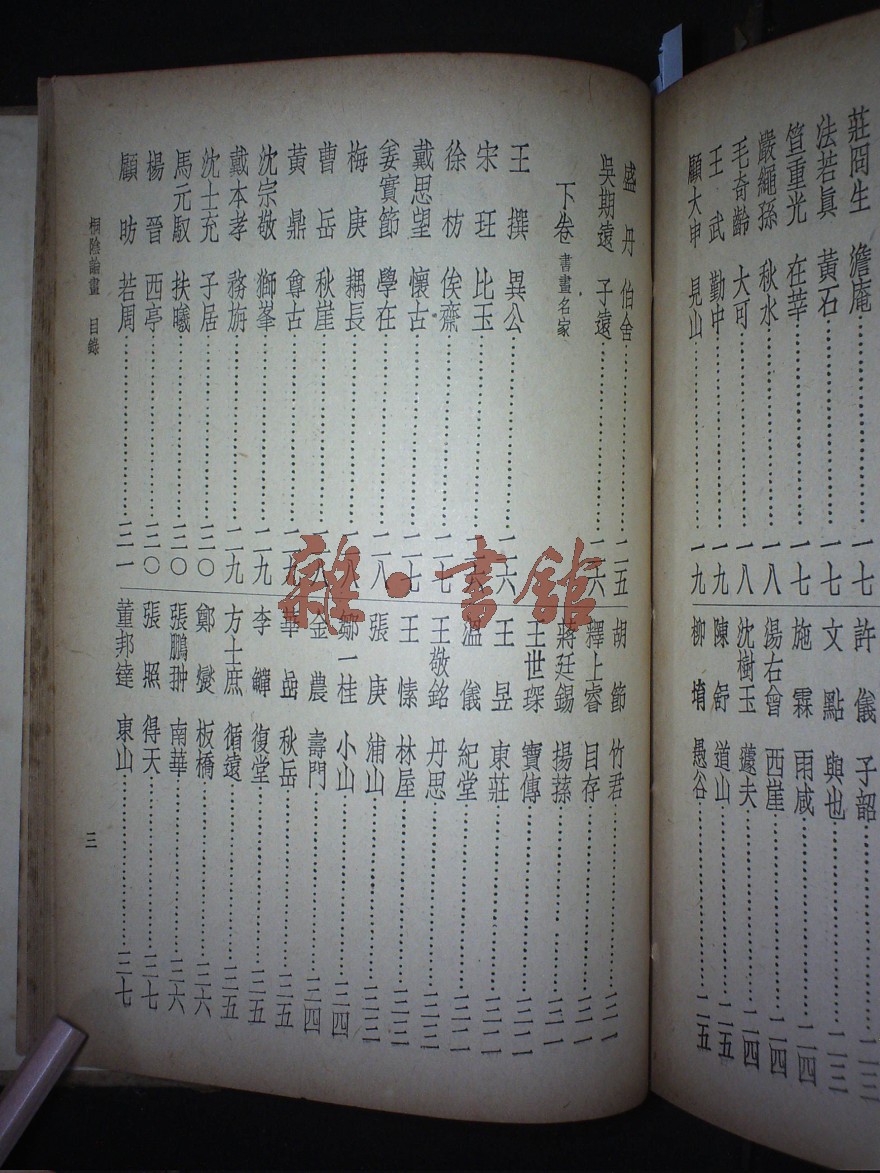 莊冏生 澹庵……一七
法若眞 黃石……一七
笪重光 在莘……一七
嚴繩孫 秋水……一八
毛奇齡 大可……一八
王 武 勤中……一九
顧大申 見山……一九
許 儀 子韶……二三
文 點 與也……二三
施 霖 雨咸……二四
湯右曾 西崖……二四
沈樹玉 蘧夫……二四
陳 舒 道山……二五
柳 堉 愚谷……二五
盛 丹 伯含……二五
吳期遠 子遠……二六
下卷 書畫名家
王 撰 異公……二六
宋 玨 比玉……二六
徐 枋 俟齋……二七
戴思望 懷古……二七
姜實節 學在……二八
梅 庚 耦長……二八
曹 岳 秋崖……二八
黃 鼎 尊古……二九
沈宗敬 獅峯……二九
戴本孝 務旃……二九
沈士充 子居……三〇
馬元馭 扶曦……三〇
楊 晉 西亭……三〇
顧 昉 若周……三一
胡 節 竹君……三一
釋上睿 目存……三一
蔣廷錫 揚蓀……三一
王世琛 寶傳……三二
王 昱 東莊……三二
溫 儀 紀堂……三二
王敬銘 丹思……三三
王 愫 林屋……三三
張 庚 浦山……三三
鄒一桂 小山……三四
金 農 壽門……三四
華 嵒 秋岳……三五
李 鱓 復堂……三五
方士庶 循遠……三五
鄭 燮 板橋……三六
張鵬翀 南華……三六
張 照 得天……三七
董邦達 東山……三七
桐陰論畫 目錄 三
雜·書館